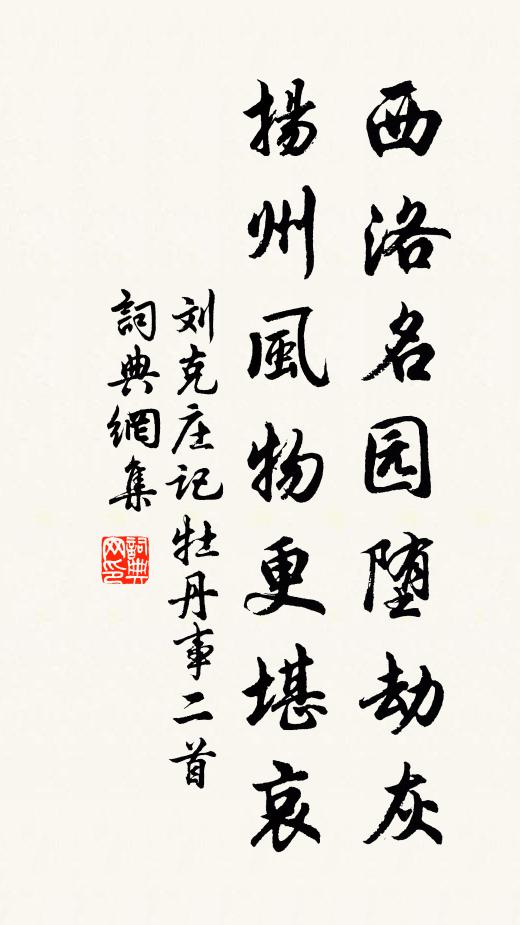 西洛名园堕劫灰
揚州風物更堪哀
刘克庄记牡丹事二首
詞典網集
詞典
网印